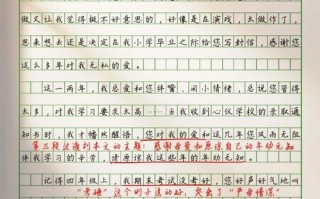 做又让我觉得挺不好意思的，好像是在演戏，太做作了，
思来想去还是决定在我小学毕业之际给您写封信，感谢您
这么多年对我无私的爱。
这一两年，我总爱和您拌嘴，闹小情绪，总说您管得
太多，对我学习要求太高——当我收到心仪学校的录取通
知书时，我才幡然醒悟，您对我的爱和这几年您风雨无阻
第三段过渡到本文的主题：感谢母爱和原谅自己的年幼无知
伴我学习的辛苦，请原谅我这些年的年幼无知。
记得四年级上，我期末考试没考好，您好声好气地问
"考砸"这个例子选的好，突出了"严母情深"